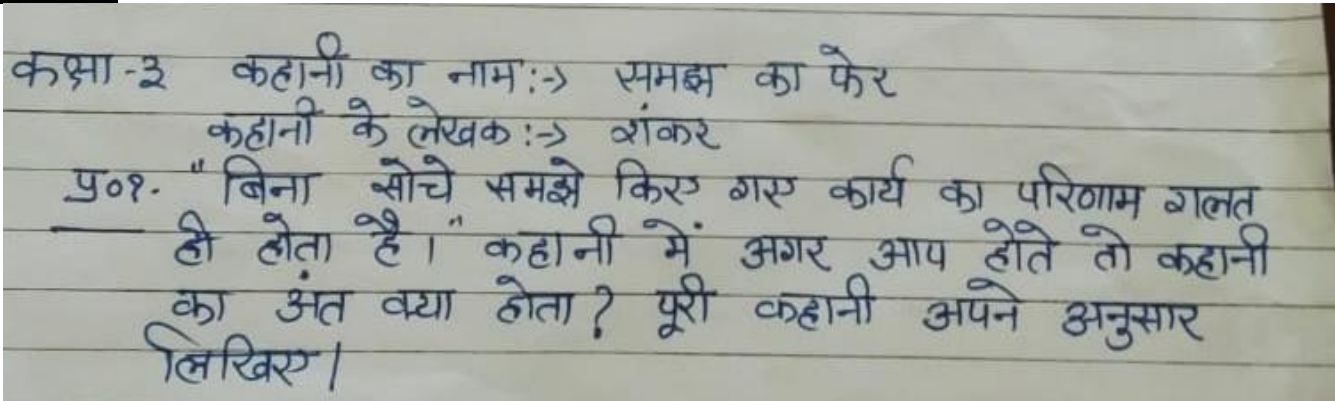 कक्षा -३ कहानी का नाम :-> समझ का फेर
कहानी के लेखक :-> शंकर
प्र०१. "बिना सोचे समझे किए गए कार्य का परिणाम गलत
ही होता है।" कहानी में अगर आप होते तो कहानी
का अंत क्या होता? पूरी कहानी अपने अनुसार
लिखिए।